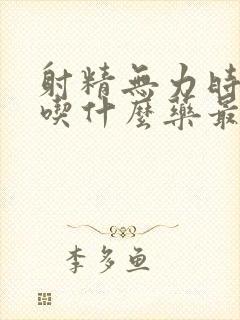 射精無力時
喫什麼藥最
李多鱼